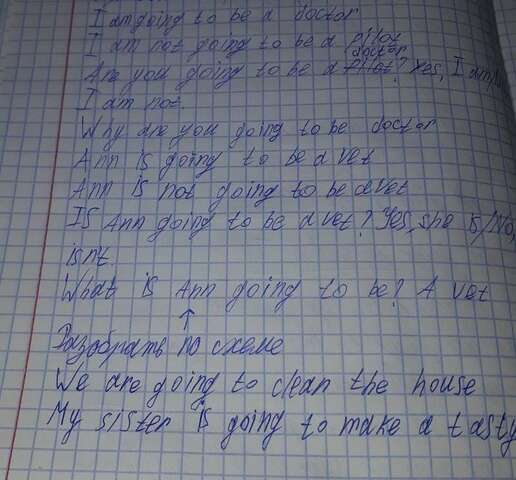 I am going to be a doctor
I am not going to be a pilot
doctor
Are you going to be a pilot? Yes, I am/
I am not.
Why are you going to be doctor
Ann is going to be a vet
Ann is not going to be a vet
Is Ann going to be a vet? Yes, she is/No,
isnt.
What is Ann going to be? A vet
Разобрать по схеме
We are going to clean the house
My sister is going to make a tasty